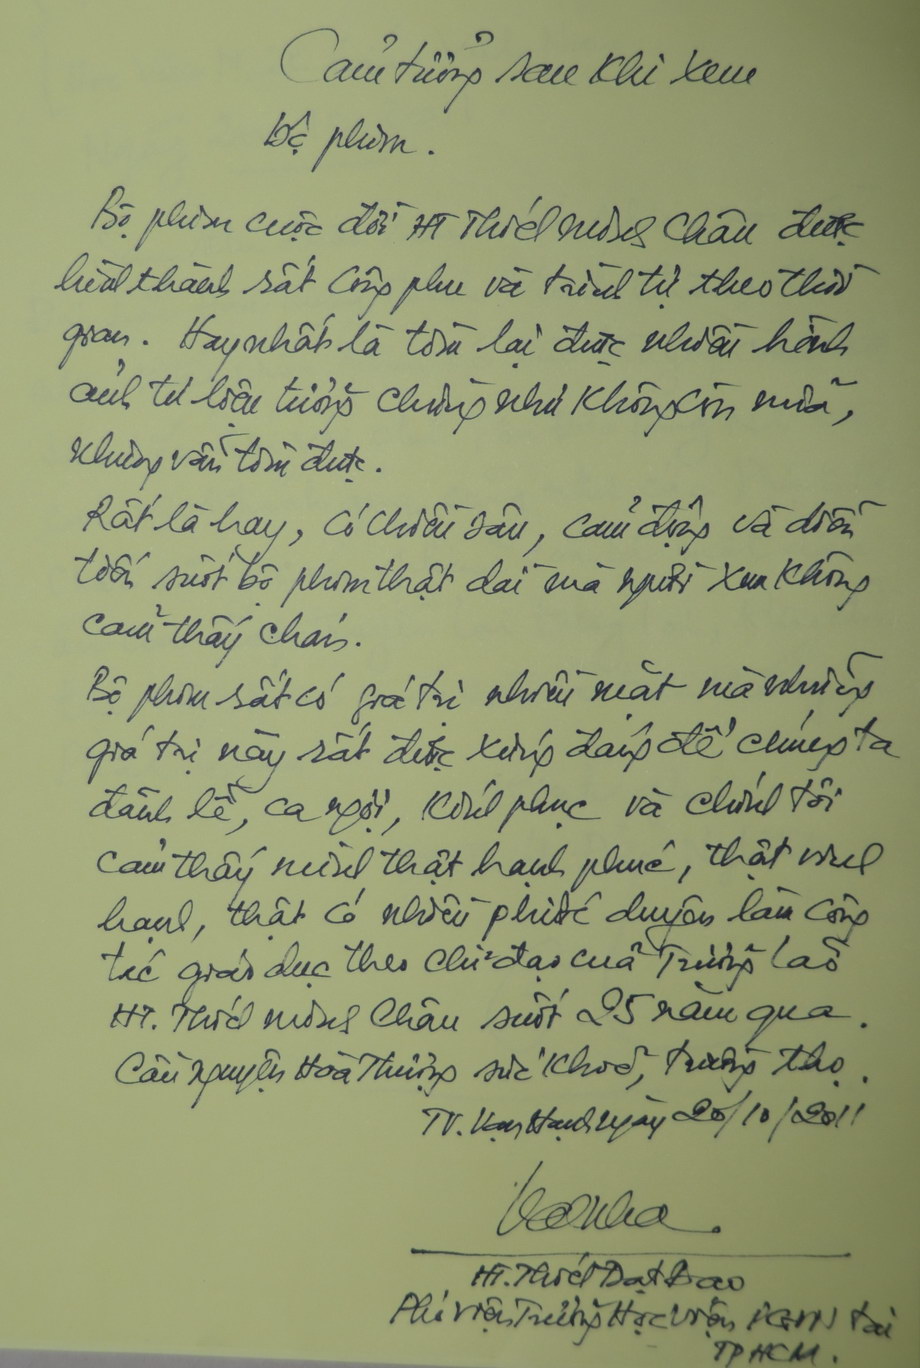 Cảm tưởng sau khi xem
bộ phim.
Bộ phim cuộc đời HT Thích Minh Châu được
hình thành rất công phu và trình tự theo thời
gian. Hay nhất là tìm lại được nhiều hình
ảnh tư liệu tưởng chừng như không còn nữa,
nhưng vẫn tìm được.
Rất là hay, có chiều sâu, cảm động và diễn
tiến suốt bộ phim thật dài mà người xem không
cảm thấy chán.
Bộ phim rất có giá trị nhiều mặt mà những
giá trị này rất được xứng đáng để chúng ta
đảnh lễ, ca ngợi, kính phục và chính tôi
cảm thấy mình thật hạnh phúc, thật vinh
hạnh, thật có nhiều phước duyên làm công
tác giáo dục theo chỉ đạo của Trưởng lão
HT. Thích Minh Châu suốt 25 năm qua.
Cầu nguyện Hòa Thượng sức khoẻ, trường thọ.
TV. Vạn Hạnh ngày 20/10/2011
HT. Thích Đạt Đạo
Phó Viện Trưởng Học Viện PGVN tại
TP HCM.